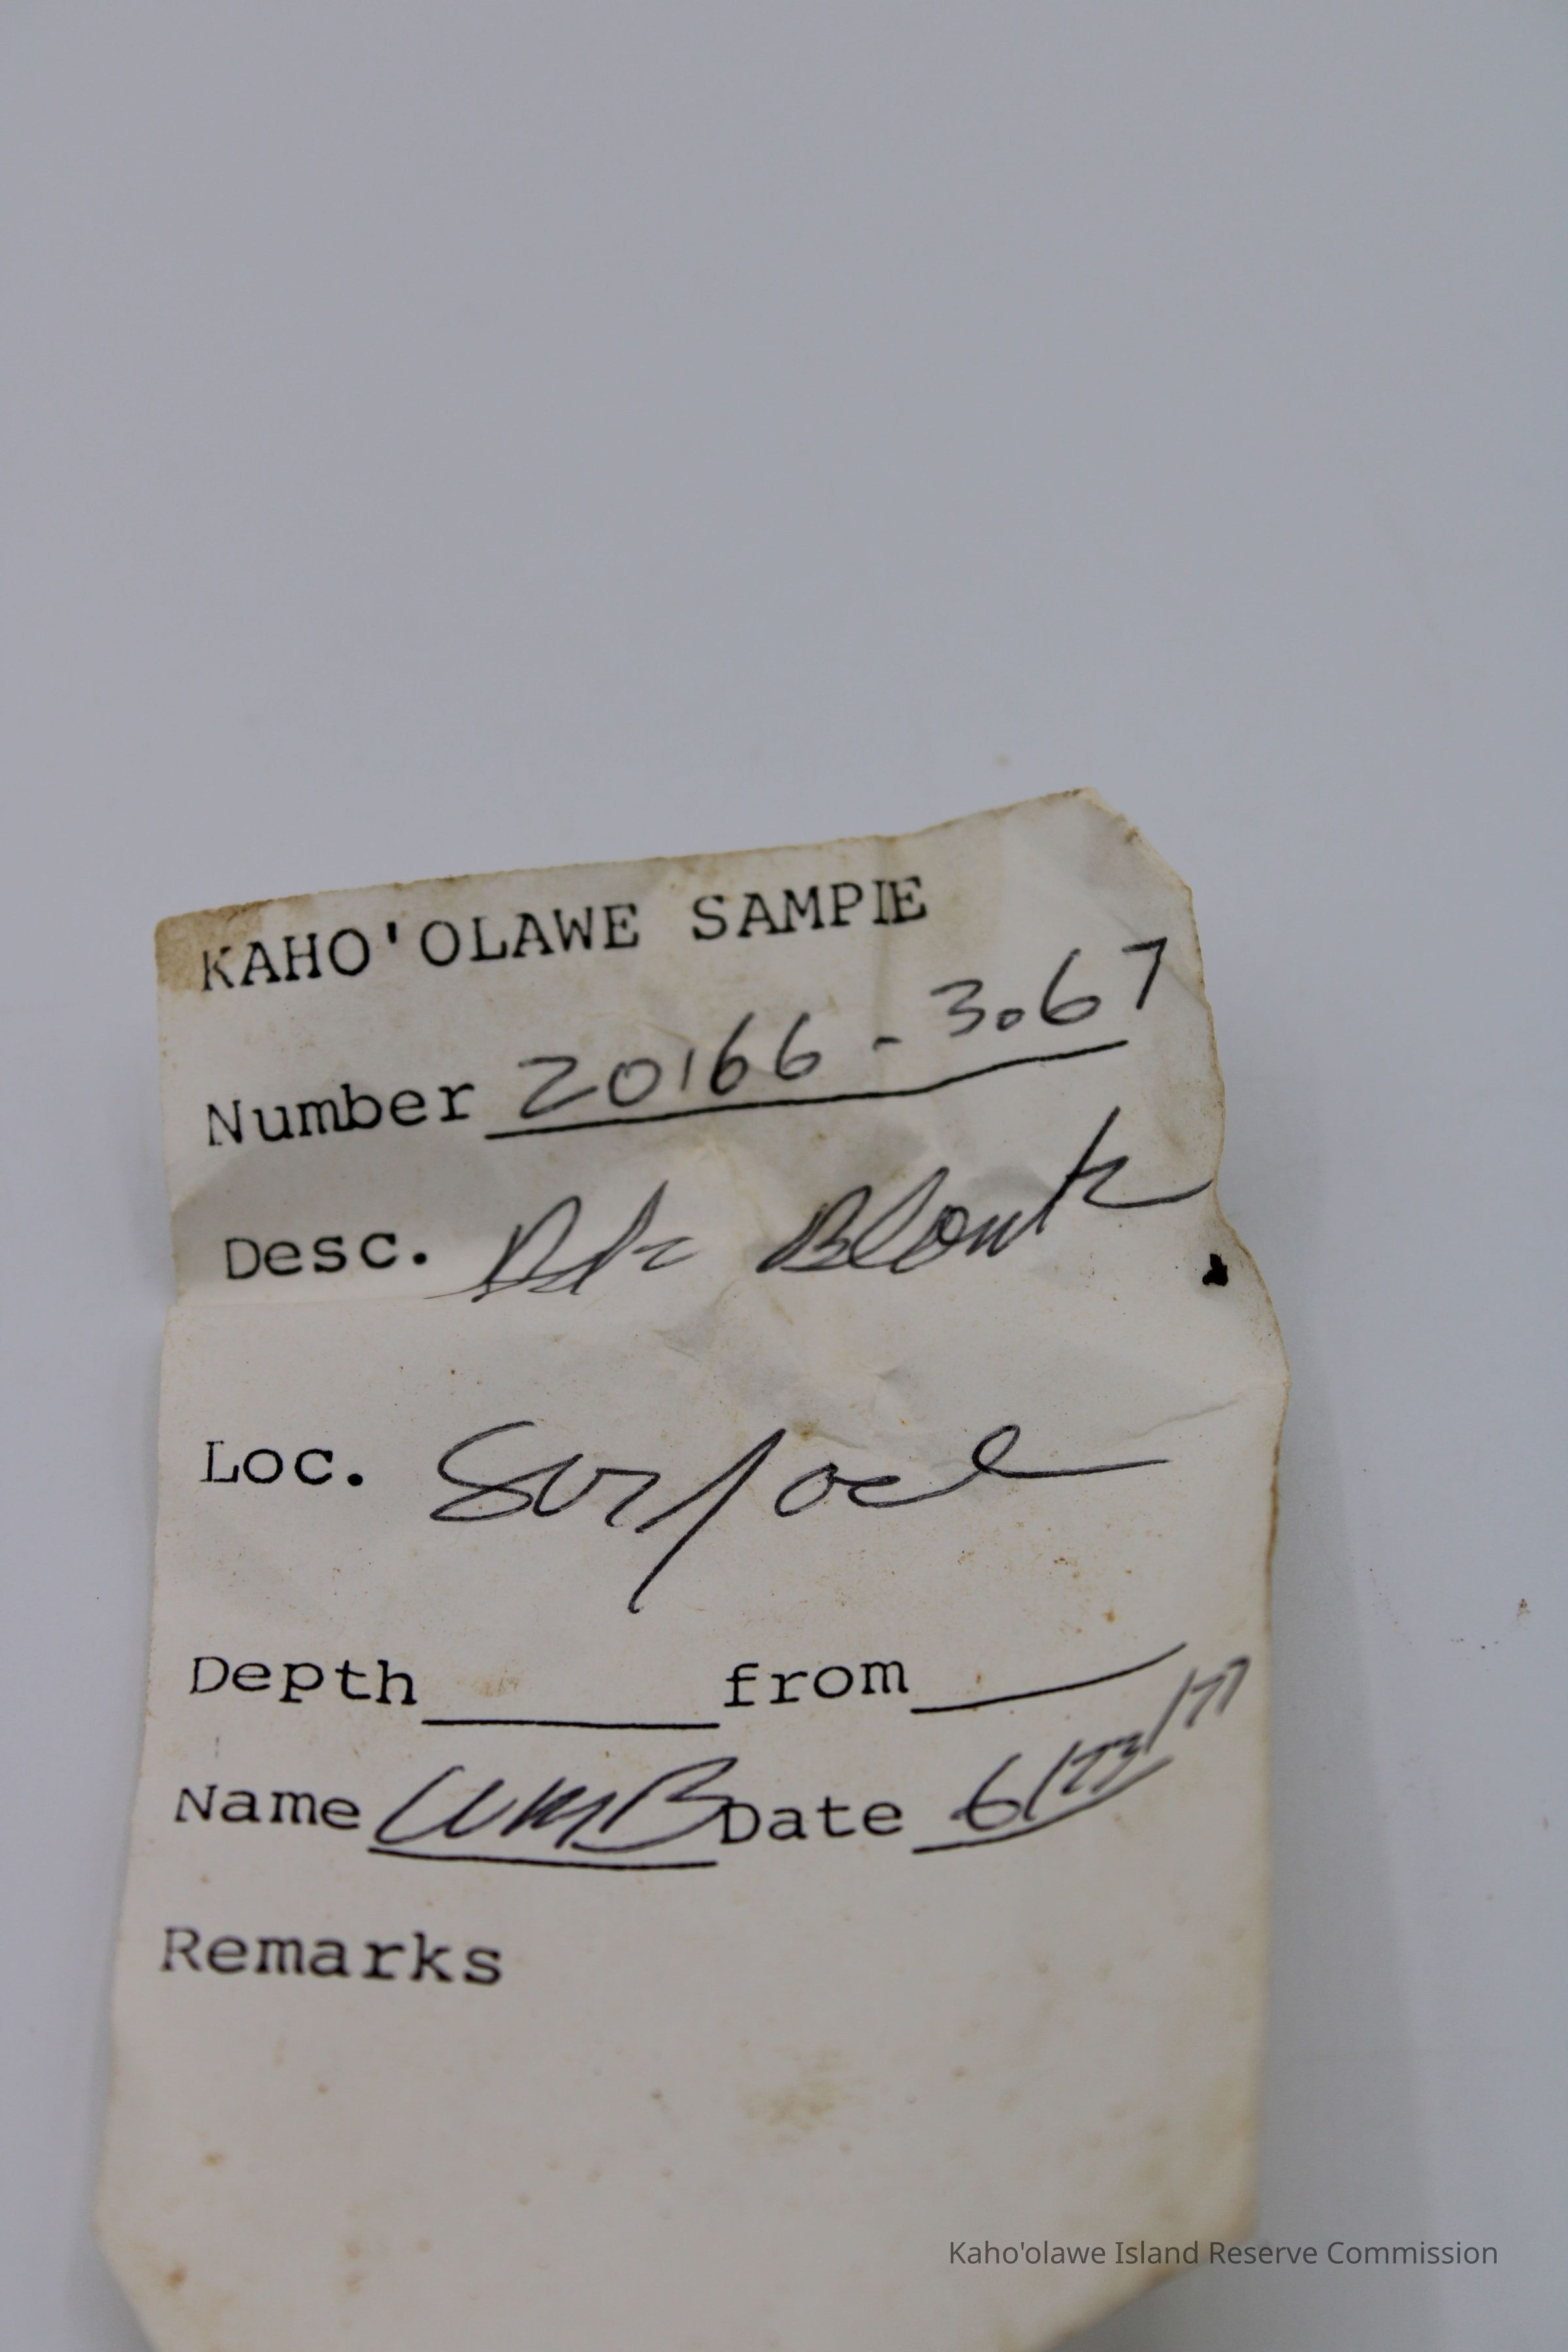 KAHO'OLAWE SAMPIE
Number 20166 - 3.67
Desc. Blank
Loc. Surface
Depth from
Name WMB Date 6/23/77
Remarks
Kaho'olawe Island Reserve Commission